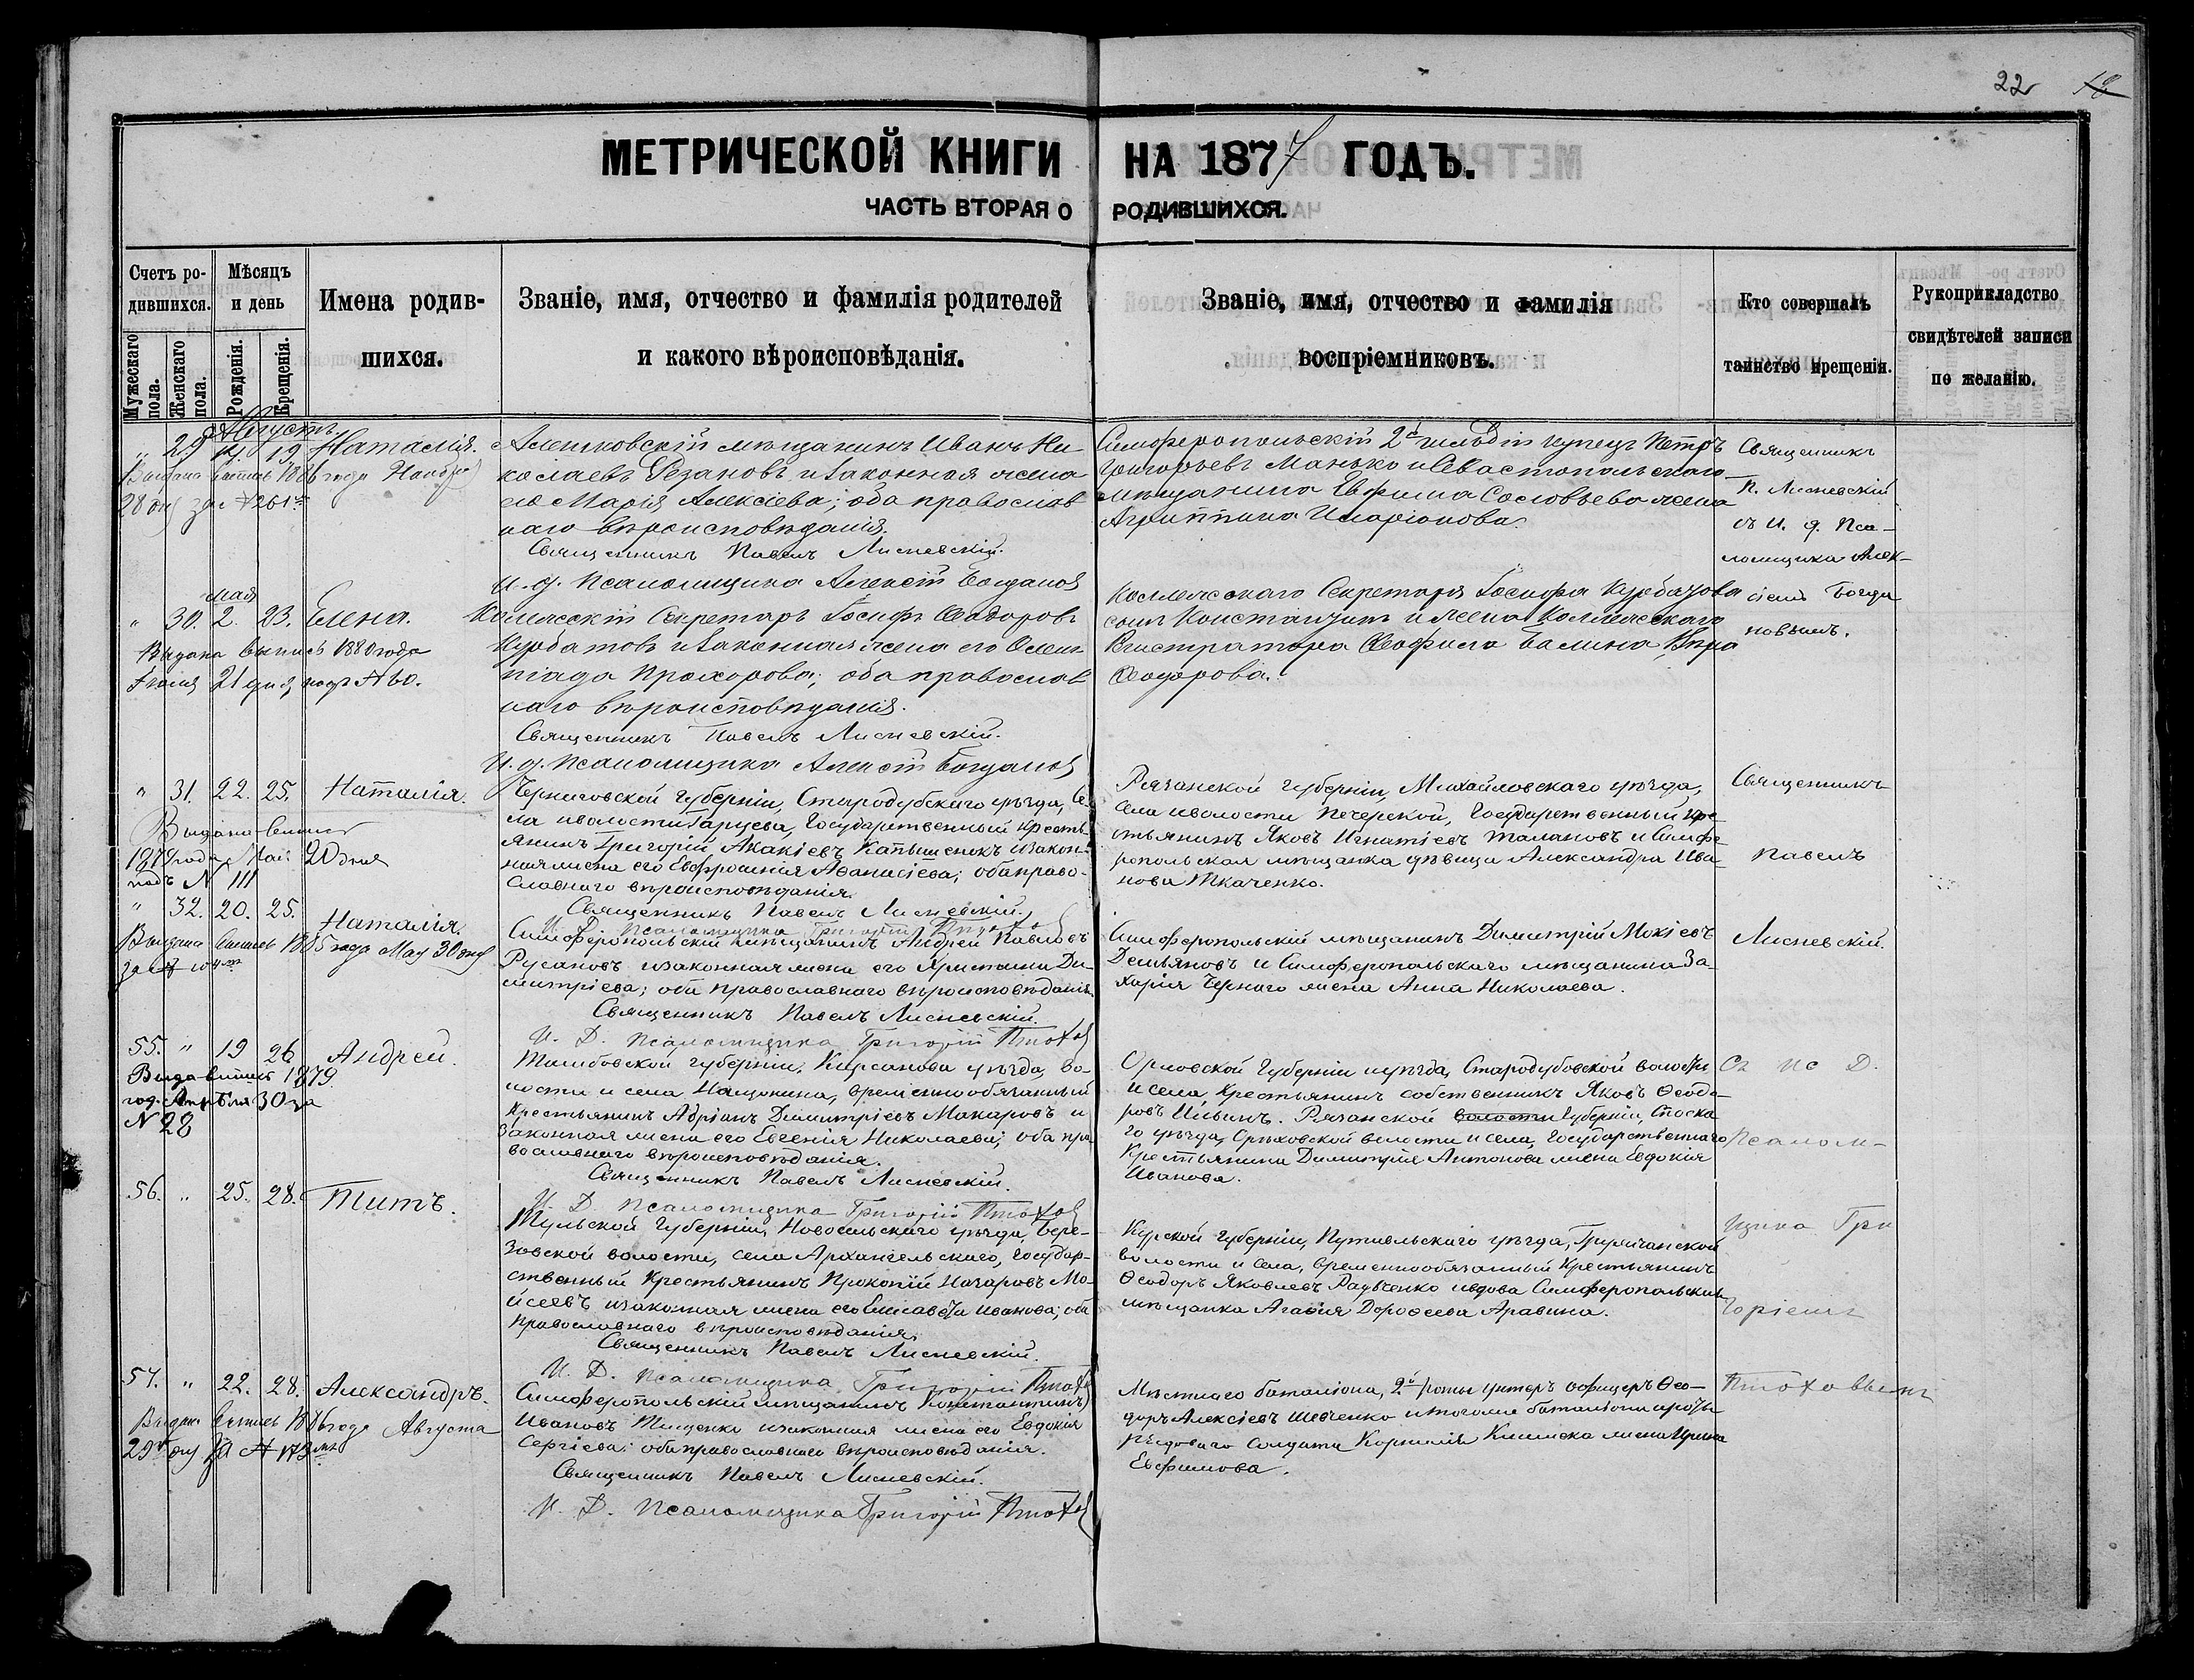 22 18
МЕТРИЧЕСКОЙ КНИГИ НА 1877 ГОДЪ.
ЧАСТЬ ВТОРАЯ О РОДИВШИХСЯ.
Счетъ ро-
дившихся.
Мужескаго пола.
Женскаго пола.
Мѣсяцъ
и день
Рожденія.
Крещенія.
Имена родив-
шихся.
Званіе, имя, отчество и фамилія родителей
и какого вѣроисповѣданія.
Званіе, имя, отчество и фамилія
воспріемниковъ.
Кто совершалъ
таинство крещенія.
Рукоприкладство
свидѣтелей записи
по желанію.
Августъ
„ 29 14. 19. Наталія.
Выдана выпись 1886 года Ноября
28 дня за № 261
Алешковскій мѣщанинъ Иванъ Ни
колаевъ Резановъ и законная жена
его Марія Алексіева; оба православ
наго вѣроисповѣданія.
Священникъ Павелъ Лисневскій.
И. д. Псаломщика Алексій Богданов
Симферопольскій 2й гильдіи купецъ Петръ
Григорьевъ Манько и Севастопольскаго
мѣщанина Ефима Соловьева жена
Агриппина Иларіонова.
Священникъ
П. Лисневскій
съ И. д. Пса-
ломщика Алек-
сіемъ Богда
новымъ.
мая
„ 30. 2. 23. Елена.
Выдана выпись 1880 года
Іюля 21 дня, подъ № 60.
Коллежскій Секретарь Іосифъ Ѳеодоровъ
Курбатовъ и законная жена его Олим
піада Прохорова; оба православ
наго вѣроисповѣданія.
Священникъ Павелъ Лисневскій.
И. д. Псаломщика Алексій Богданов
Коллежскаго Секретаря Іосифа Курбатова
сынъ Константинъ и жена Коллежскаго
Регистратора Ѳеофила Балина Вѣра
Ѳеодорова.
„ 31. 22. 25. Наталія.
Выдана выпись
1879 года Мая 20 дня
подъ N 111
Черниговской губерніи, Стародубскаго уѣзда, Се
ла и волости Гарцева, Государственный Кресть
янинъ Григорій Акакіевъ Капышенкъ и закон-
ная жена его Евфросинія Аѳанасіева; оба право-
славнаго вѣроисповѣданія.
Священникъ Павелъ Лисневскій.
И. Д. Псаломщика Григорій Птохов
Рязанской губерніи, Михайловскаго уѣзда,
Села и волости Печерской, Государственный кре
стьянинъ Яковъ Игнатіевъ Талановъ и Симфе
ропольская мѣщанка дѣвица Александра Ива
нова Ткаченко.
Священникъ
Павелъ
Лисневскій.
„ 32. 20. 25. Наталія.
Выдана выпись 1885 года Мая 30 дня
за №
Симферопольскій мѣщанинъ Андрей Павловъ
Русановъ и законная жена его Христина Ди-
митріева; оба православнаго вѣроисповѣданія.
Священникъ Павелъ Лисневскій.
И. Д. Псаломщика Григорій Птохов
Симферопольскій мѣщанинъ Димитрій Мокіевъ
Демьяновъ и Симферопольскаго мѣщанина За-
харія Чернаго жена Анна Николаева.
55. „ 19 26 Андрей.
Выда выпись 1879
год. Апрѣля 30 за
N 28
Тамбовской губерніи, Кирсанова уѣзда, во-
лости и села Нащокина, временнообязанный
Крестьянинъ Адріанъ Димитріевъ Макаровъ и
законная жена его Евгенія Николаева; оба пра
вославнаго вѣроисповѣданія.
Священникъ Павелъ Лисневскій.
И. Д. Псаломщика Григорій Птохов
Орловской Губерніи и уѣзда, Стародубовской волости
и села, Крестьянинъ собственникъ Яковъ Ѳеодо-
ровъ Ильинъ. Рязанской волости Губерніи, Спаска
го уѣзда, Орѣховской волости и села, Государственнаго
Крестьянина Димитрія Антонова жена Евдокія
Иванова.
Съ И. Д.
Псалом-
щика Гри
горіемъ
Птоховымъ
56. „ 25. 28. Титъ.
Тульской Губерніи, Новосильскаго уѣзда, Бере-
зовской волости, села Архангельскаго, Государ-
ственный Крестьянинъ Прокопій Назаровъ Мо-
исеевъ и законная жена его Елисавета Иванова; оба
Православнаго вѣроисповѣданія.
Священникъ Павелъ Лисневскій.
И. Д. Псаломщика Григорій Птохов
Курской губерніи, Путивльскаго уѣзда,
волости и села, временнообязанный Крестьянинъ
Ѳеодоръ Яковлевъ Радченко и вдова Симферопольская
мѣщанка Агафія Дороѳеева Аравина.
57. „ 22. 28. Александръ.
Выдана выпись 1886 года Августа
29 дня за № 173
Симферопольскій мѣщанинъ Константинъ
Ивановъ Тищенко и законная жена его Евдокія
Сергіева; оба православнаго вѣроисповѣданія.
Священникъ Павелъ Лисневскій.
И. Д. Псаломщика Григорій Птохов
Мѣстнаго баталіона, 2й роты унтеръ офицеръ Ѳео-
доръ Алексіевъ Шевченко и тогоже баталіона и роты
рядоваго солдата Корнилія Климека жена Ирина
Евфимова.